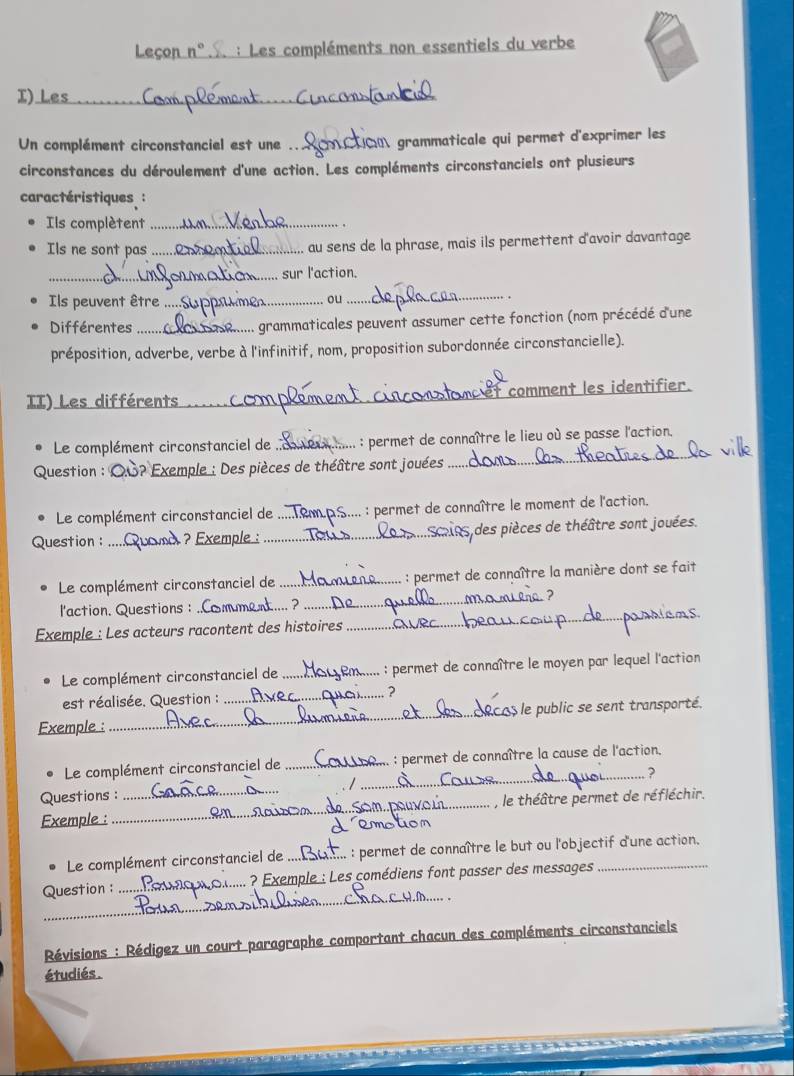 Leçon n° 5 : Les compléments non essentiels du verbe
I) Les Complément Circonstanciel
Un complément circonstanciel est une fonction grammaticale qui permet d'exprimer les
circonstances du déroulement d'une action. Les compléments circonstanciels ont plusieurs
caractéristiques :
• Ils complètent un Verbe.
• Ils ne sont pas essentiel au sens de la phrase, mais ils permettent d'avoir davantage
d'information sur l'action.
• Ils peuvent être supprimer ou deplacer.
• Différentes classe grammaticales peuvent assumer cette fonction (nom précédé d'une
préposition, adverbe, verbe à l'infinitif, nom, proposition subordonnée circonstancielle).
II) Les différents complément circonstanciel et comment les identifier.
• Le complément circonstanciel de lieu : permet de connaître le lieu où se passe l'action.
Question : Où? Exemple : Des pièces de théâtre sont jouées dans les theatres de la ville
• Le complément circonstanciel de Temps : permet de connaître le moment de l'action.
Question : Quand ? Exemple : Tous les soirs, des pièces de théâtre sont jouées.
• Le complément circonstanciel de Maniere : permet de connaître la manière dont se fait
l'action. Questions : Comment ? De quelle maniere ?
Exemple : Les acteurs racontent des histoires avec beaucoup de passions.
• Le complément circonstanciel de Moyen : permet de connaître le moyen par lequel l'action
est réalisée. Question : Avec quoi ?
Exemple : Avec la lumière et les décos le public se sent transporté.
• Le complément circonstanciel de Cause : permet de connaître la cause de l'action.
Questions : Grâce à / à cause de quoi ?
Exemple : en raison de son pouvoir , le théâtre permet de réfléchir.
d'emotion
• Le complément circonstanciel de But : permet de connaître le but ou l'objectif d'une action.
Question : Pourquoi ? Exemple : Les comédiens font passer des messages
Pour sensibiliser chacun.
Révisions : Rédigez un court paragraphe comportant chacun des compléments circonstanciels
étudiés.